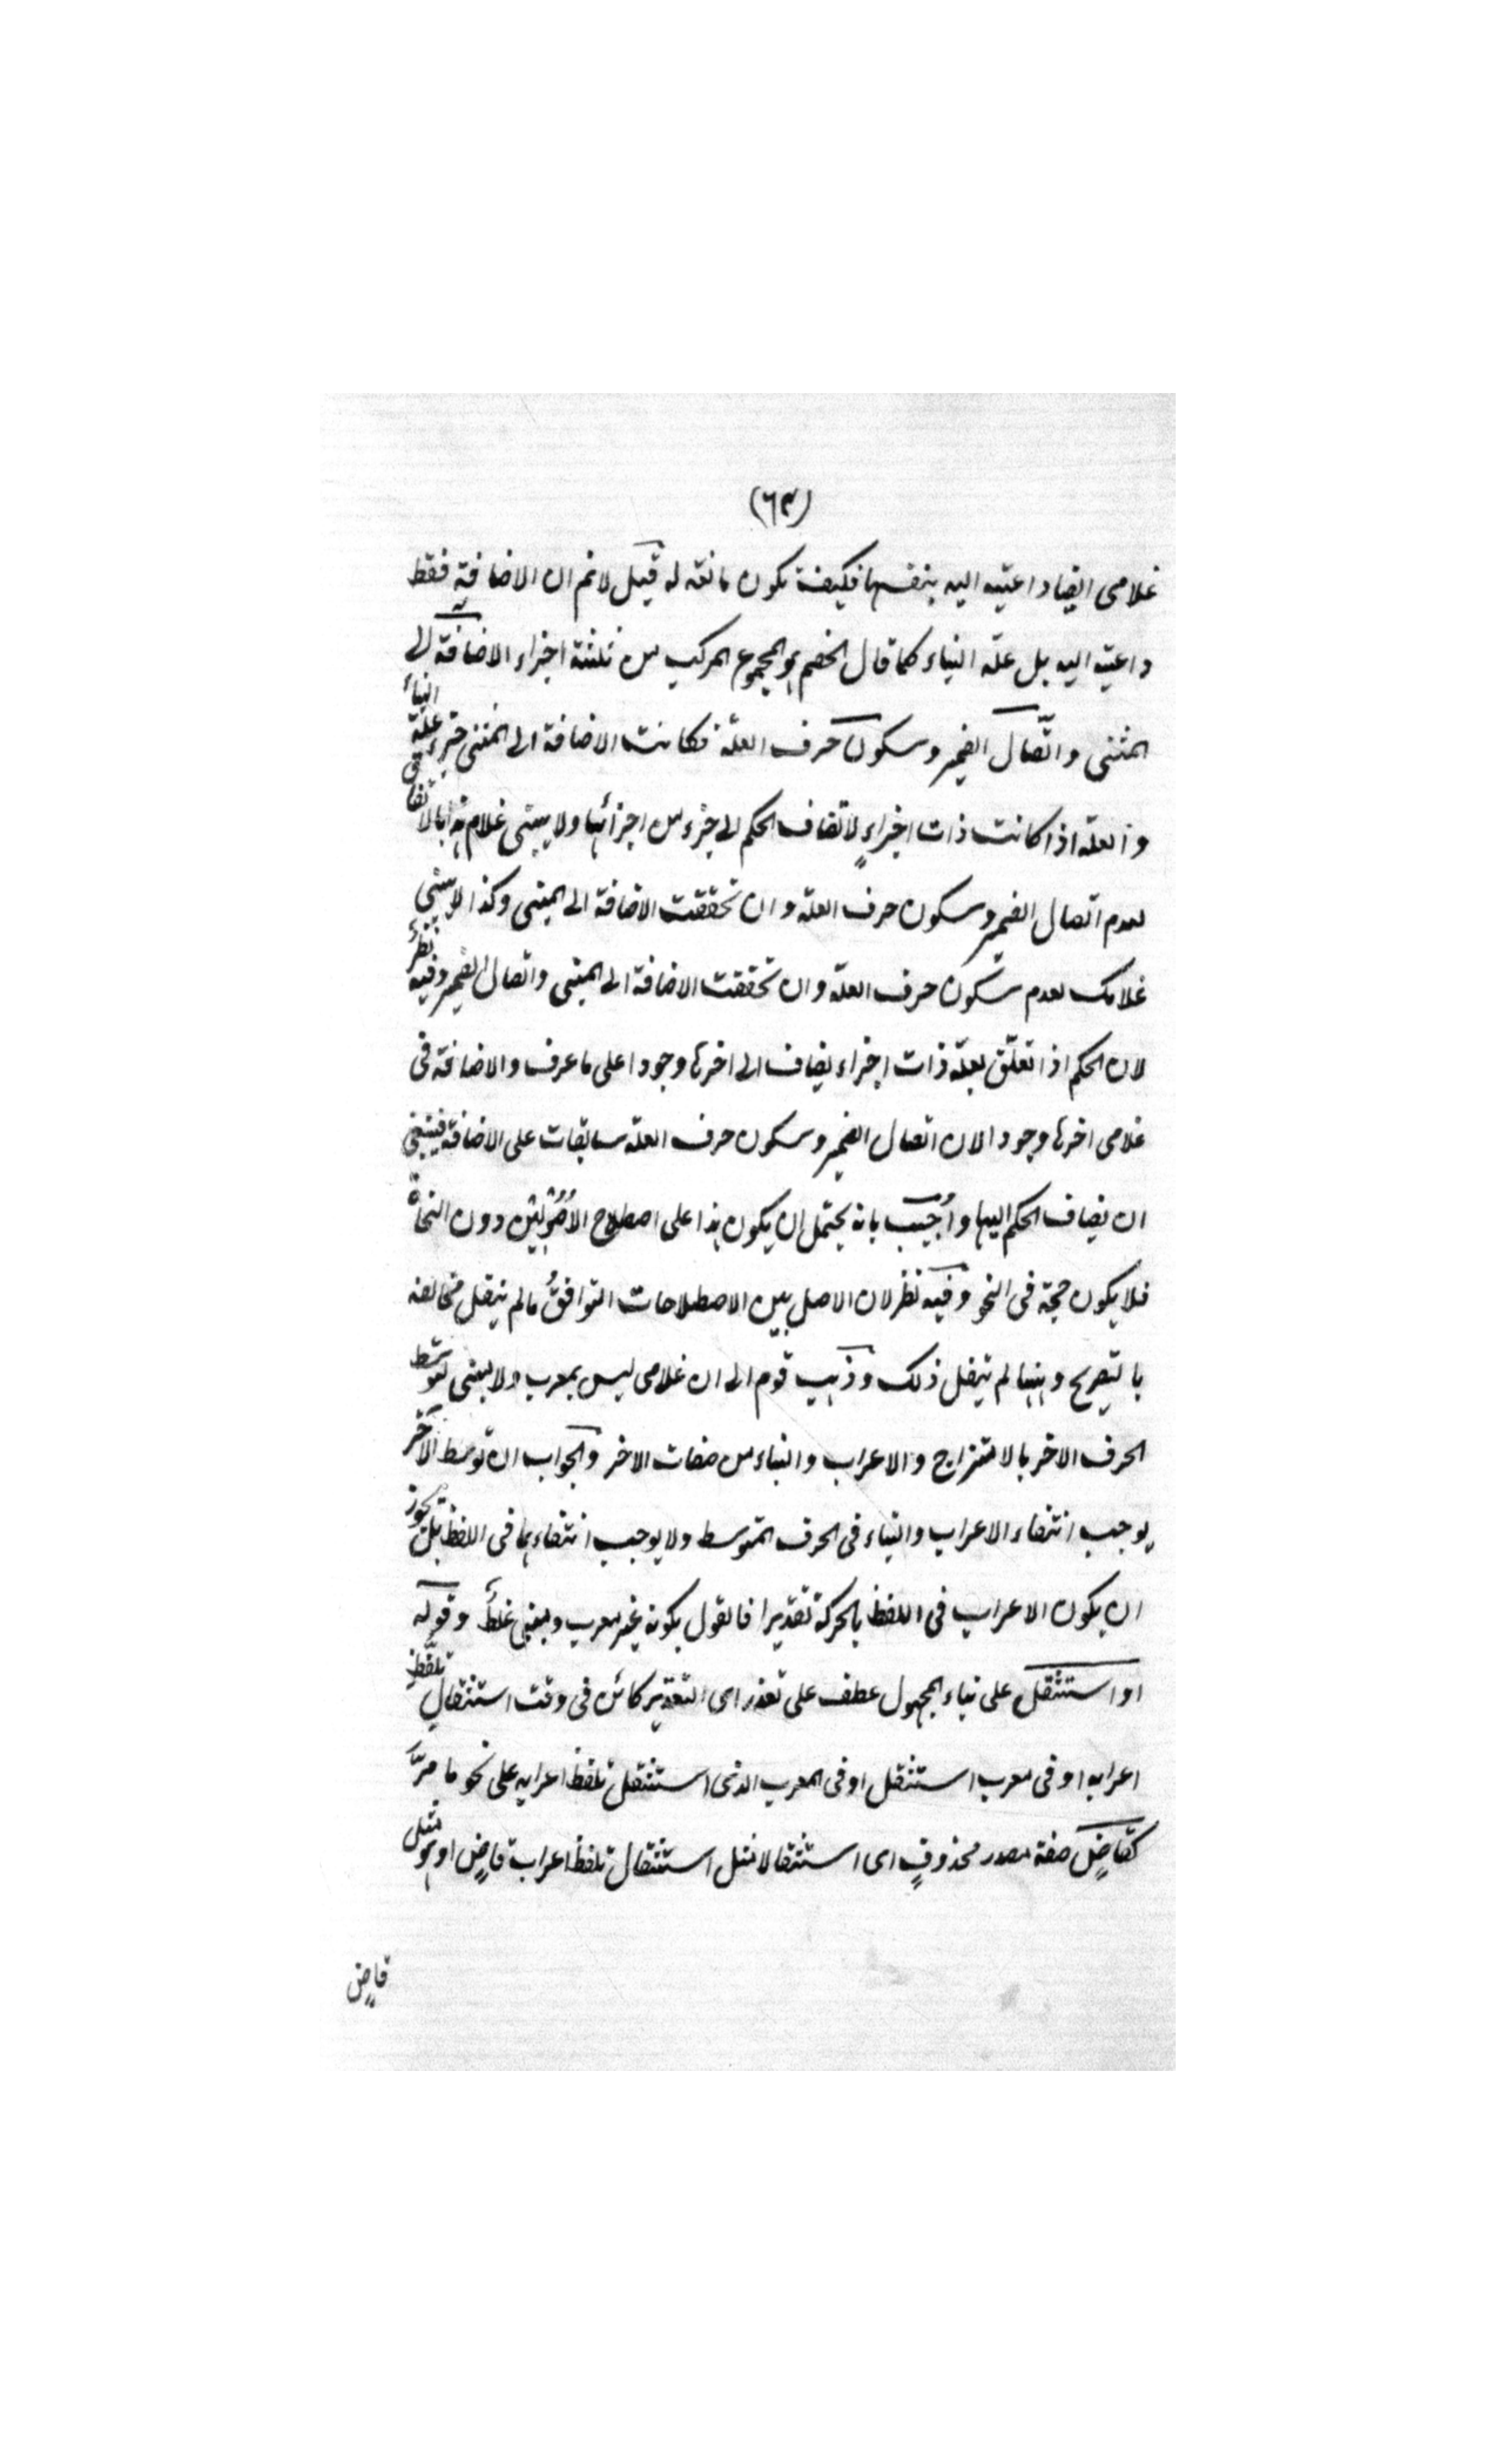 (٦٣)
غلامى ايضا داعية اليه بنفسها فكيف يكون مانعة له قيل لانم ان الاضافة فقط
داعية اليه بل علة البناء كما قال الخصم هو المجموع المركب من ثلثة اجزاء الاضافة الى
المبنى واتصال الضمير وسكون حرف العلة فكانت الاضافة الى المبنى جزء علة البناء
والعلة اذا كانت ذات اجزاءٍ لا تضاف الحكم الى جزء من اجزائها ولا يبنى غلام هذا بالاتفاق
لعدم اتصال الضمير وسكون حرف العلة وان تحققت الاضافة الى المبنى وكذا لا يبنى
غلامك لعدم سكون حرف العلة وان تحققت الاضافة الى المبنى واتصال الضمير وفيه نظر
لان الحكم اذا تعلّق بعلة ذات اجزاء يضاف الى اخرها وجودا على ما عرف والاضافة فى
غلامى اخرها وجودا لان اتصال الضمير وسكون حرف العلة سابقات على الاضافة فينبغى
ان يضاف الحكم اليها واُجيب بانه يحتمل ان يكون هذا على اصطلاح الاُصُوليين دون النحاة
فلا يكون حجة فى النحو وفيه نظر لان الاصل بين الاصطلاحات التوافقُ ما لم ينقل مخالفة
بالتصريح وههنا لم ينقل ذلك وذهب قوم الى ان غلامى ليس بمعرب ولا بمبنى لتوسط
الحرف الاخر بالامتزاج والاعراب والبناء من صفات الاخر والجواب ان توسط الاخر
يوجب انتفاء الاعراب والبناء فى الحرف المتوسط ولا يوجب انتفاءهما فى اللفظ بل يجوز
ان يكون الاعراب فى اللفظ بالحركة تقديرا فالقول بكونه غير معرب ومبنى غلطٌ وقوله
او استثقل على بناء المجهول عطف على تعذر اى التقدير كائن فى وقت استثقال تلفظ
اعرابه او فى معرب استثقل او فى المعرب الذى استثقل تلفظ اعرابه على نحو ما مرّ
كقاضٍ صفة مصدر محذوفٍ اى استثقالا مثل استثقال تلفظ اعراب قاضٍ او هو مثل
قاضٍ